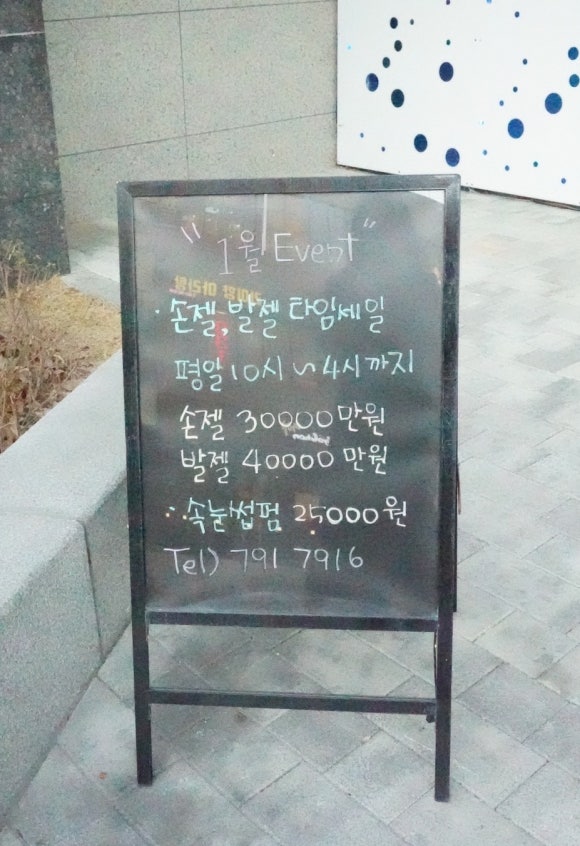 "1월 Event"
· 손젤, 발젤 타임세일
평일 10시 ~ 4시까지
손젤 30000만원
발젤 40000만원
· 속눈썹펌 25000원
Tel) 791 7916